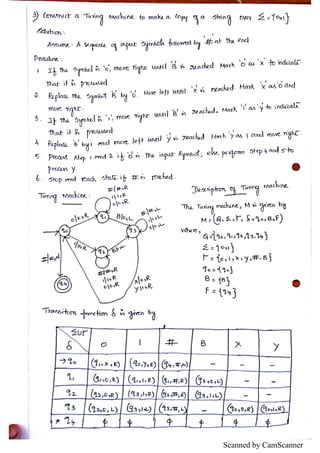 3) Construct a Turing Machine to make a copy of a string over Σ={0,1}
Solution.
Assume: A sequence of input symbols followed by '#' at the end.
Procedure:
1 If the symbol is '0', move right until 'B' is reached. Mark '0' as 'x' to indicate
that it is processed
2. Replace the symbol B by '0'. Move left until 'x' is reached. Mark 'x' as '0' and
move right.
3. If the symbol is '1', move right until 'B' is reached. Mark '1' as 'y' to indicate
that it is processed
4 Replace 'B' by 1 and move left until 'y' is reached Mark 'y' as 1 and move right.
5 Process step 1 and 2 if '0' is the input symbol, else perform step 4 and 5 to
process y
6. Stop and reach state if # is reached.
Turing machine:
Description of Turing machine
The Turing machine, M is given by
M = (Q, Σ, Γ, δ, q0, B, F)
where,
Q = {q0, q1, q2, q3, q4}
Σ = {0,1}
Γ = {0,1,x,y,#,B}
q0 = {q0}
B = {B}
F = {q4}
#|#,R
1|1,R
0|0,R
0|x,R
q1
B|0,L
#|#,L
1|1,L
0|0,L
q0
q3
1|y,R
q2
B|1,L
#|#,R
1|1,R
0|0,R
x|0,R
y|1,R
q4
Transition function δ is given by
ΣUΓ
δ 0 1 # B X Y
→q0 (q1,x,R) (q2,y,R) (q4,#,N) - - -
q1 (q1,0,R) (q1,1,R) (q1,#,R) (q3,0,L) - -
q2 (q2,0,R) (q2,1,R) (q2,#,R) (q3,1,L) - -
q3 (q3,0,L) (q3,1,L) (q3,#,L) - (q0,0,R) (q0,1,R)
* q4 φ φ φ φ φ φ
Scanned by CamScanner